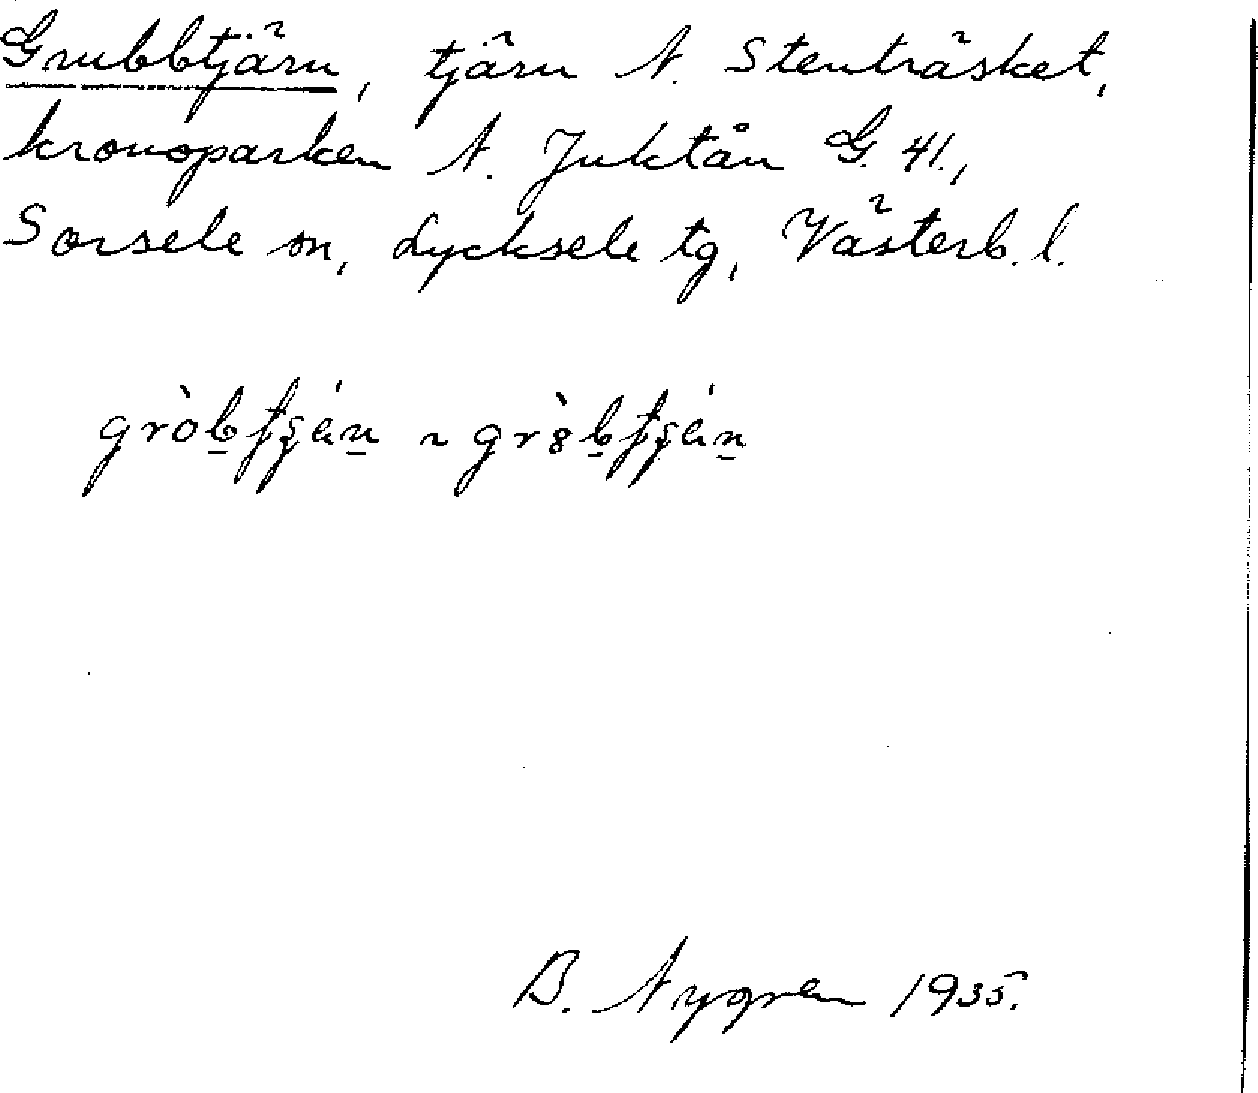 Grubbtjärn, tjärn N. Stenträsket,
kronoparken N. Juktån G. 41.,
Sorsele sn, Lycksele tg, Västerb. l.
B. Nygren 1935.